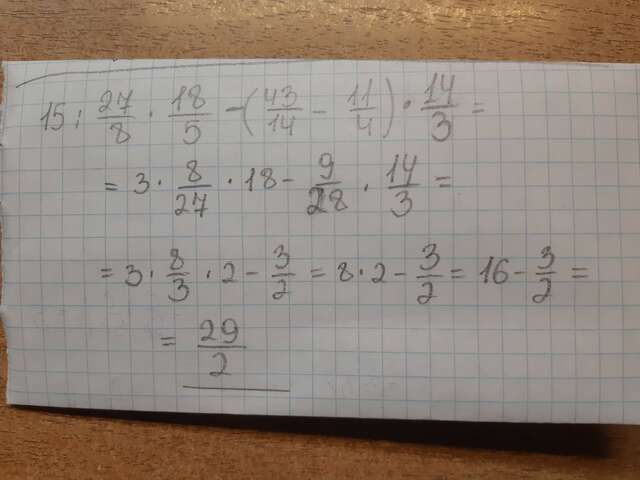 15 : 27/8 · 18/5 - (43/14 - 11/4) · 14/3 =
= 3 · 8/27 · 18 - 9/28 · 14/3 =
= 3 · 8/3 · 2 - 3/2 = 8 · 2 - 3/2 = 16 - 3/2 =
= 29/2